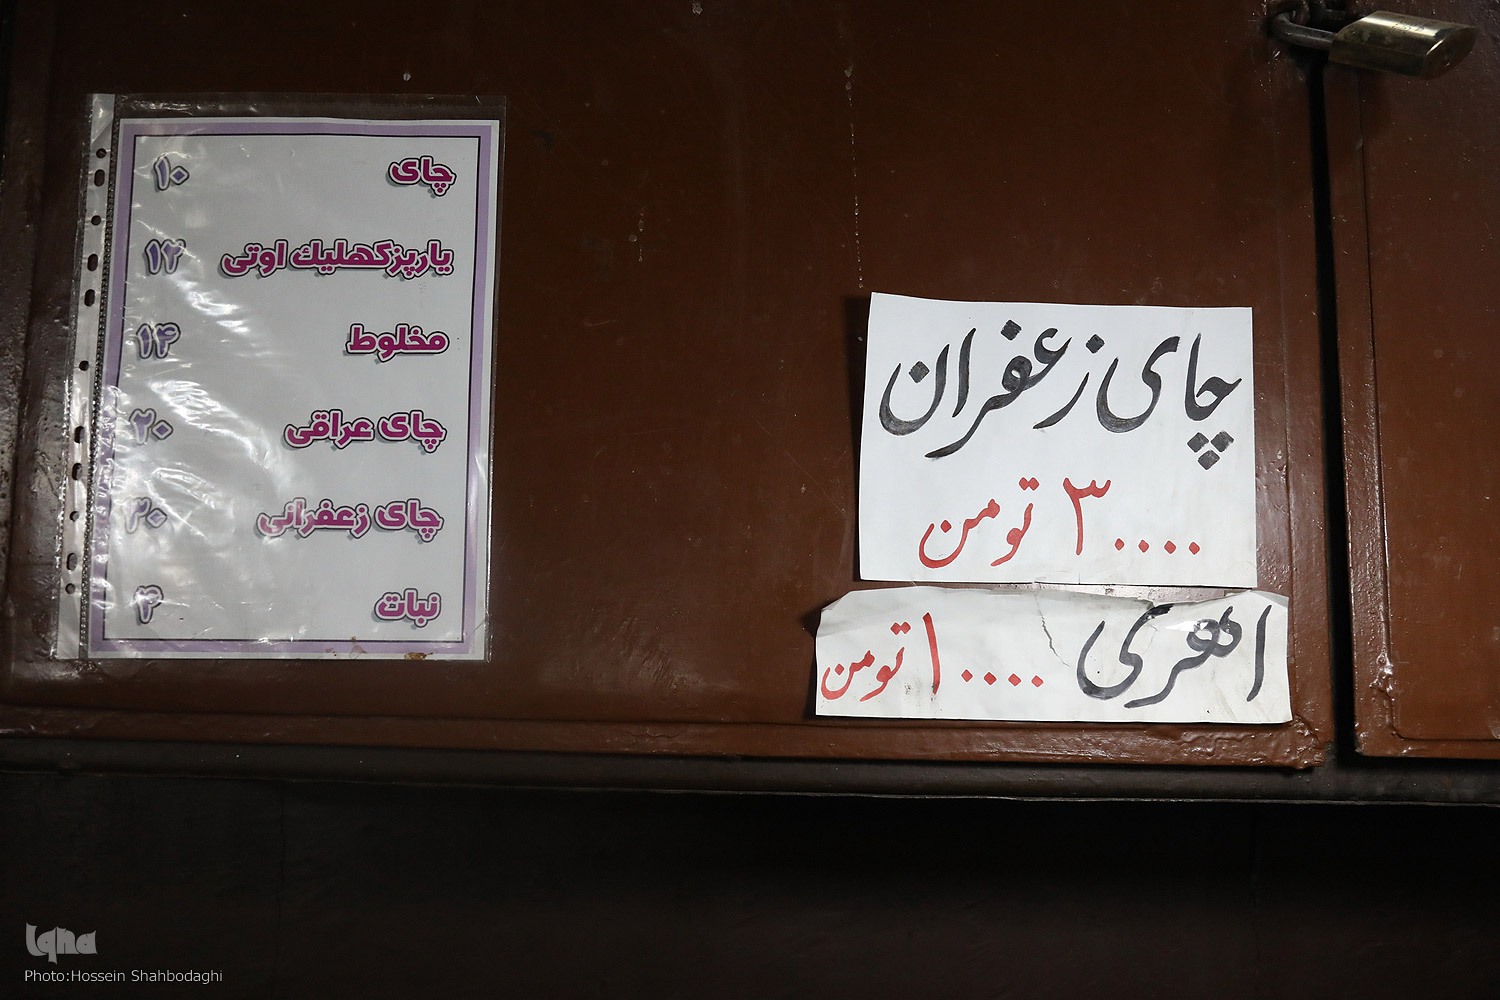 چای ۱۰
یارپزکهلیك اوتی ۱۲
مخلوط ۱۴
چای عراقی ۲۰
چای زعفرانی ۳۰
نبات ۴
چای زعفران
۳۰۰۰۰ تومن
اهری ۱۰۰۰۰ تومن
Iqna
Photo:Hossein Shahbodaghi